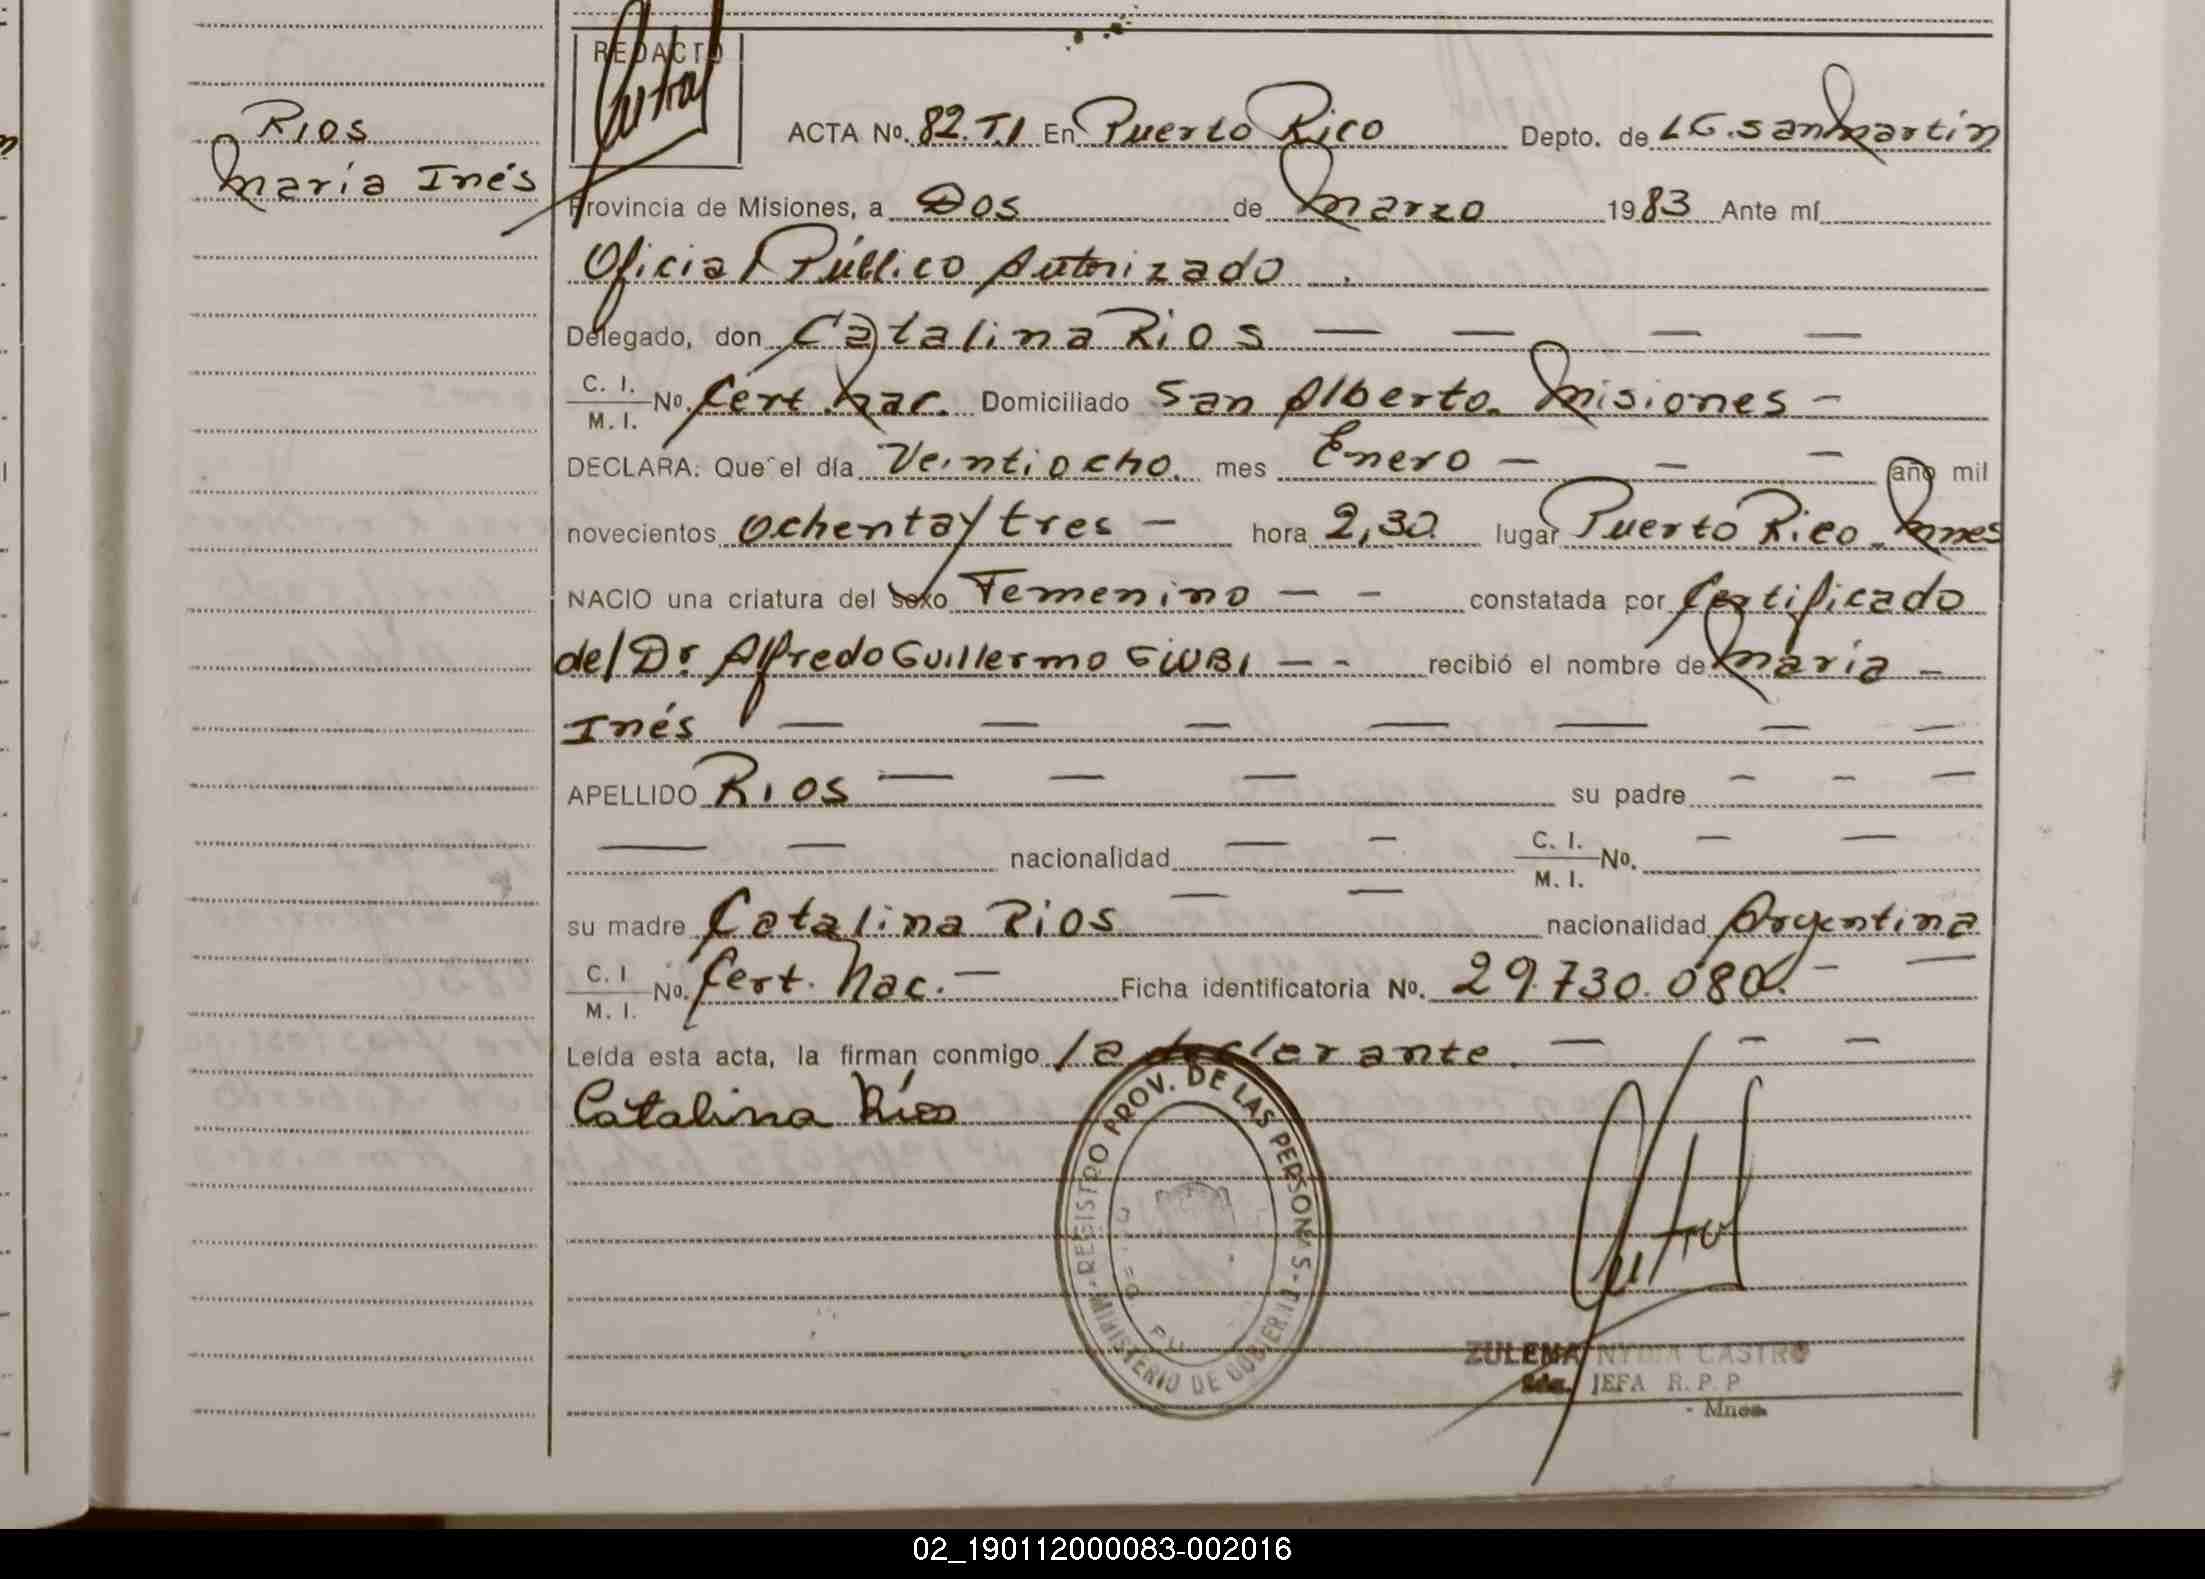 REDACTO
Rios
María Inés
ACTA No. 82.T.I En Puerto Rico Depto. de L G. San Martín
Provincia de Misiones, a Dos de Marzo 1983 Ante mí
Oficial Público Autorizado.
Delegado, don Catalina Rios — — — —
C. I. / M. I. No. Cert. Nac. Domiciliado San Alberto. Misiones -
DECLARA: Que el día Veintiocho. mes Enero — — — año mil
novecientos ochenta y tres - hora 2,30 lugar Puerto Rico - Mnes
NACIO una criatura del sexo Femenino — - constatada por Certificado
del Dr. Alfredo Guillermo GIUBI — - recibió el nombre de María -
Inés — — — — — — —
APELLIDO Rios — — — su padre - - —
— — nacionalidad — - C. I. / M. I. No. - —
su madre Catalina Rios — — nacionalidad Argentina
C. I / M. I. No. Cert. Nac. — Ficha identificatoria No. 29.730.080. - —
Leída esta acta, la firman conmigo la declarante. — - -
Catalina Ríos
REGISTRO PROV. DE LAS PERSONAS
MINISTERIO DE GOBIERNO
ZULEMA NYDIA CASTRO
JEFA R. P. P
- Mnes.
02_190112000083-002016